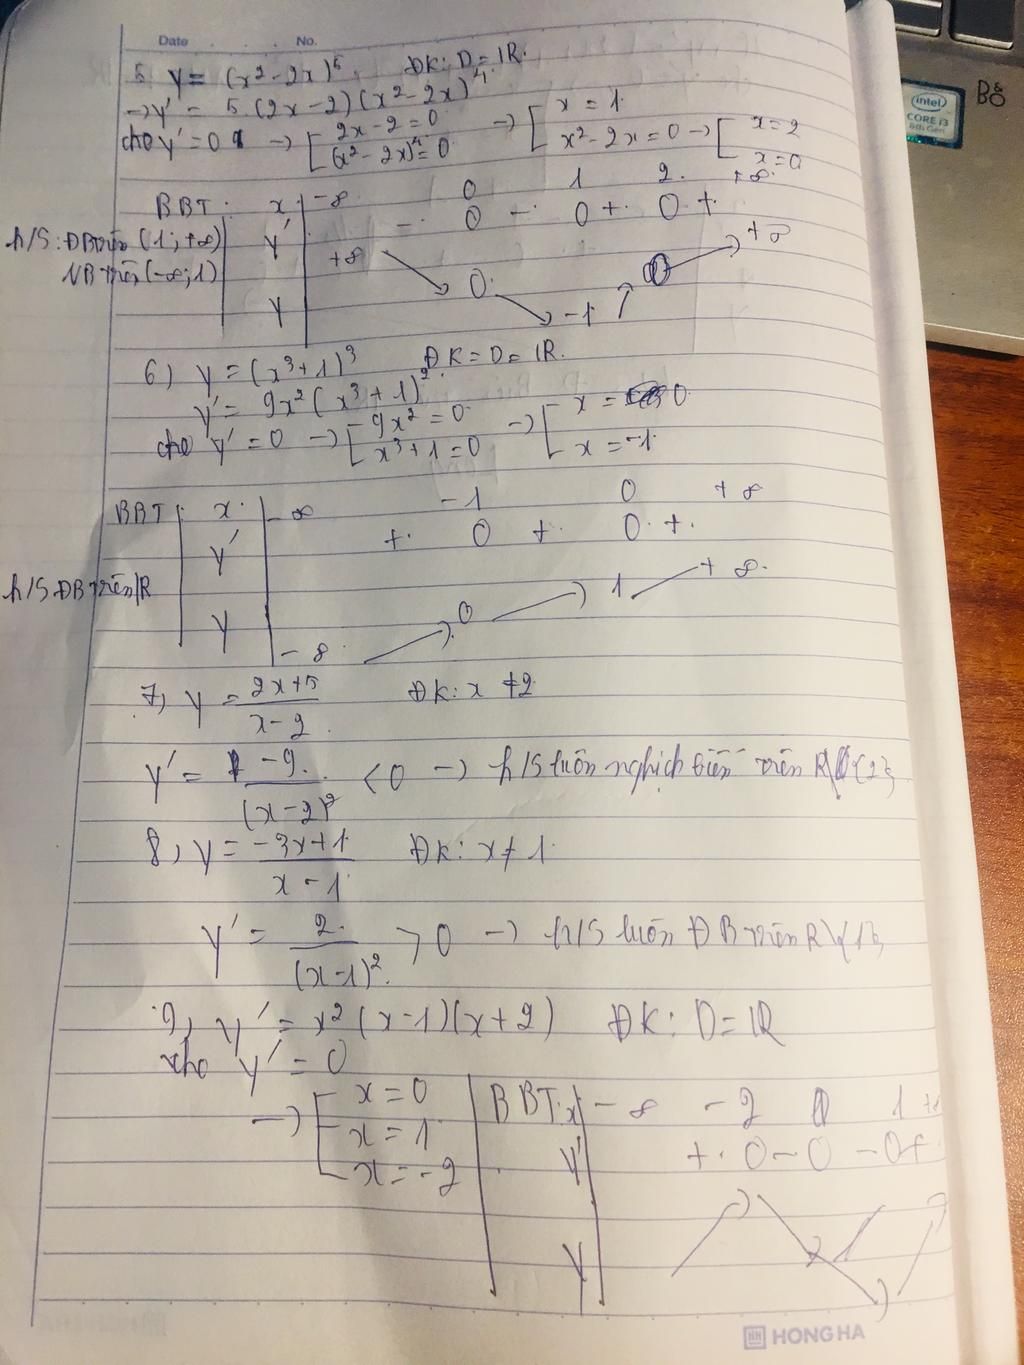 Date No.
5 y = (x² - 2x)⁵ ĐK: D = IR.
→ y' = 5.(2x-2)(x² - 2x)⁴.
cho y' = 0 → [ 2x - 2 = 0 → [ x = 1
(x² - 2x)⁴ = 0 x² - 2x = 0 → [ x = 2
x = 0
BBT: x -∞ 0 1 2 +∞
y' - 0 - 0 + 0 +
h/S: ĐB trên (1; +∞)
NB trên (-∞; 1)
y +∞ 0 -1 0 +∞
6) y = (x³ + 1)³ ĐK = D = IR.
y' = 9x² (x³ + 1)²
cho y' = 0 → [ 9x² = 0 → [ x = 0
x³ + 1 = 0 x = -1
BBT x -∞ -1 0 +∞
y' + 0 + 0 +
h/S ĐB trên IR
y -∞ 0 1 +∞
7, y = 2x+5 / x-2 ĐK: x ≠ 2
y' = -9 / (x-2)² < 0 → h/S luôn nghịch biến trên R\{2}
8, y = -3x+1 / x-1 ĐK: x ≠ 1
y' = 2 / (x-1)² > 0 → h/S luôn ĐB trên R\{1}
9, y' = x² (x-1)(x+2) ĐK: D = IR
cho y' = 0
→ [ x = 0
x = 1
x = -2
BBT x -∞ -2 0 1 +∞
y' + 0 - 0 - 0 +
y
HONG HA
intel
CORE i3
8th Gen
Bộ